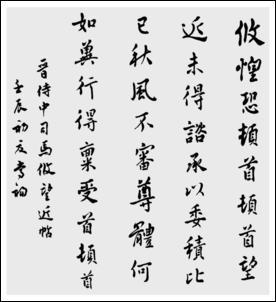 攸惶恐頓首頓首望
近未得諮承以委積比
已秋風不審尊體何
如冀行得稟受首頓首
晉侍中司馬攸望近帖
壬辰初夏書詢